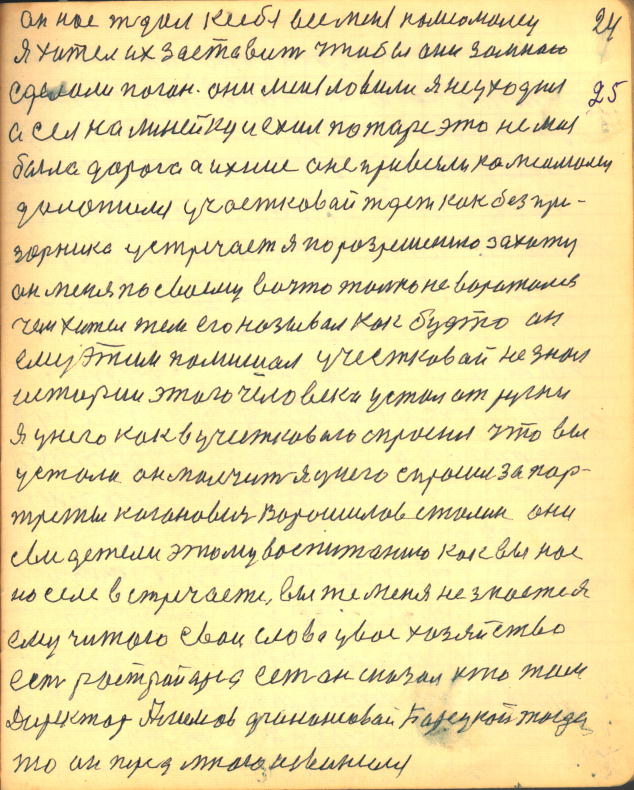 он нас ждал к себя все мене комсомолец 24
я хотел их заставит чтобы они за мною
сделали погон. они мене ловили я не уходил 25
а сел на линейку и ехал по таре это не моя
была дорога а ихние оне привезли комсомолец
доложил участковай ждет как без при-
зорника устречает я поразрешению захожу
он меня по своему во что толко не воротался
чем хотел тем его называл как будто он
ему этим помишал учестковай не знал
истории этого человека устал от ругни
я у него как в учесткового спросил что вы
устали он молчит я у него спросил за пор-
треты Коганович Ворошилов сталин они
свидетели этому воспитанию как вы нас
на селе встречаете, вы же меня не знаете я
ему читаю свои слова у вас хозяйство
ест растрай ара ест он сказал кто там
Директор Акимов финансовай Городкой тогда
то он перед много извинился